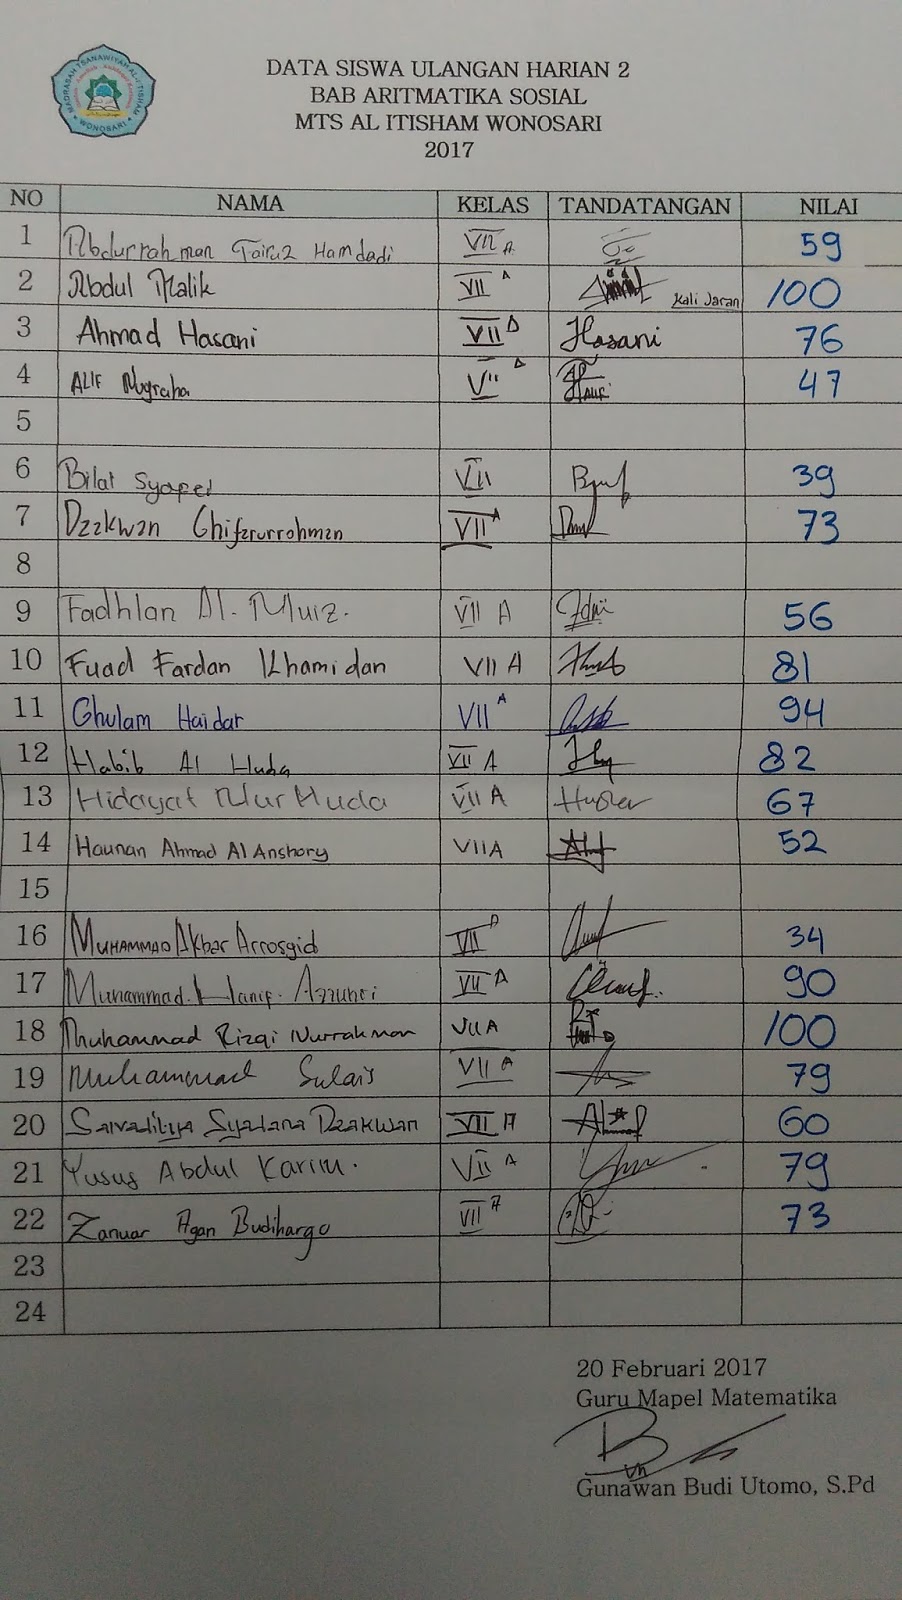 MADRASAH TSANAWIYAH AL-I'TISHAM
WONOSARI
DATA SISWA ULANGAN HARIAN 2
BAB ARITMATIKA SOSIAL
MTS AL ITISHAM WONOSARI
2017
NO NAMA KELAS TANDATANGAN NILAI
1 Abdurrahman Fairuz Hamdadi VII A 59
2 Abdul Malik VII A Kali Jaran 100
3 Ahmad Hasani VII A Hasani 76
4 ALIF Nugraha VII A ALIF 47
5
6 Bilal Syapei VII 39
7 Dzakwan Ghifarurrohman VII A 73
8
9 Fadhlan Al. Muiz. VII A 56
10 Fuad Fardan Khamidan VII A 81
11 Ghulam Haidar VII A 94
12 Habib Al Huda VII A 82
13 Hidayat Nur Huda VII A 67
14 Haunan Ahmad Al Anshory VII A 52
15
16 MUHAMMAD Akbar Arrosyid VII A 34
17 Muhammad. Hanif. Azzuhri VII A 90
18 Muhammad Rizqi Nurrahman VII A 100
19 Muhammad Sulais VII A 79
20 Syailana Dzakwan VII A 60
21 Yusus Abdul Karim. VII A 79
22 Zanuar Agan Budihargo VII A 73
23
24
20 Februari 2017
Guru Mapel Matematika
Gunawan Budi Utomo, S.Pd